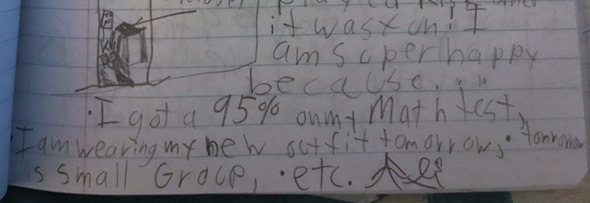 it was
am super happy
because.
• I got a 95% on my Math test,
• I am wearing my new outfit tomorrow, • tomorrow
is small Group, • etc.